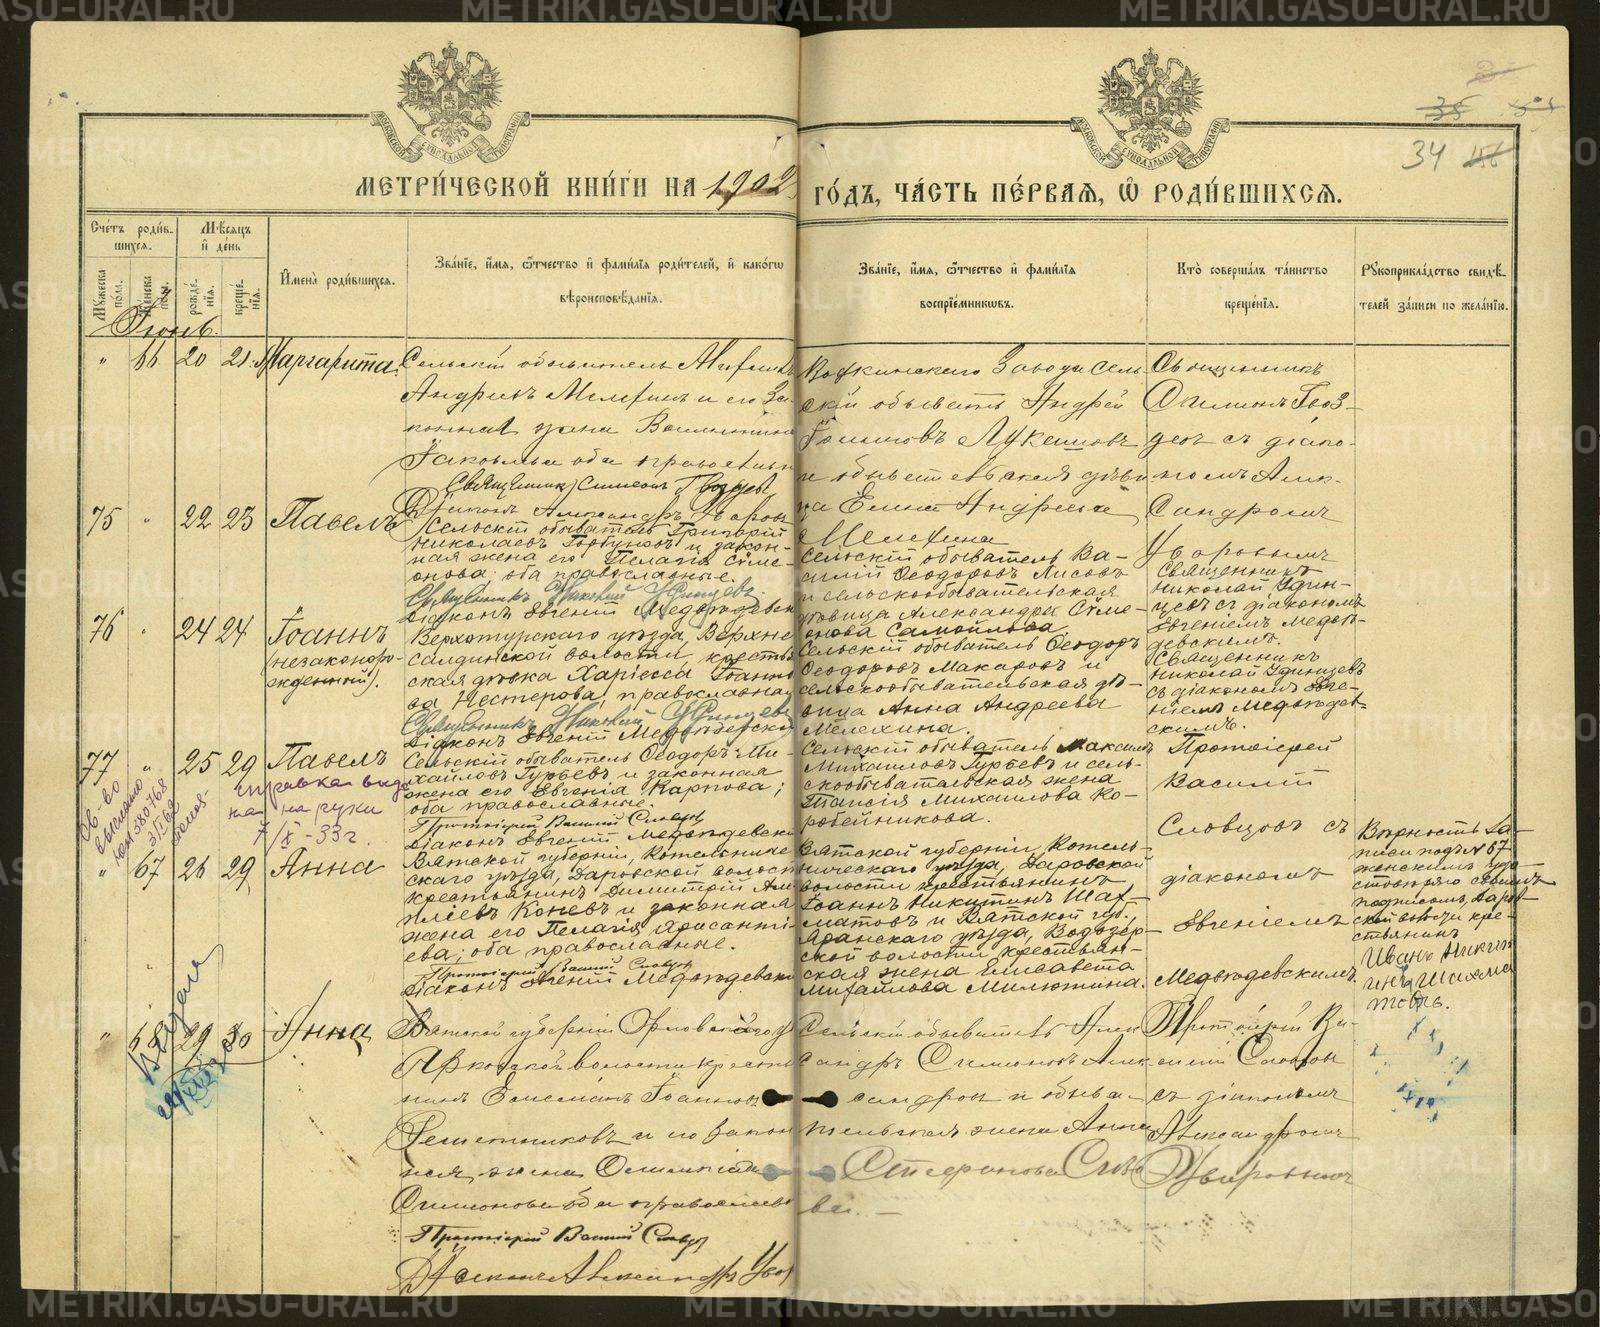 METRIKI.GASO-URAL.RU
34
МЕТРИ́ЧЕСКОЙ КНИ́ГИ НА 1902
ГО́ДЪ, ЧА́СТЬ ПЕ́РВАЯ, Ѽ РОДИ́ВШИХСЯ.
Сче́тъ роди́вшихся.
Мѣ́сяцъ и҆ де́нь
Мꙋжеска пола.
Же́нска по́ла.
рожде́нїя.
креще́нїя.
И҆мена̀ роди́вшихся.
Зва́нїе, и҆́мя, ѻ҆́тчество и҆ фами́лїя роди́телей, и҆ како́гѡ вѣроисповѣ́данїя.
Зва́нїе, и҆́мя, ѻ҆́тчество и҆ фами́лїя воспрїе́мникѡвъ.
Кто̀ соверша́лъ та́инство креще́нїя.
Рꙋкоприкла́дство свидѣ́телей за́писи по жела́нїю.
Іюнь.
" 66 20 21 Маргарита.
Сельскій обыватель
Андреевъ Мелехинъ и его за-
конная жена Валентина
Яковлева оба православные
Священникъ Симеонъ Гвоздев
Діаконъ Александръ Уваров
Воткинскаго Завода сель-
скій обыватель Андрей
и обывательская дѣви-
ца Елена Андреева
Мелехина
Священникъ
Симеонъ Гвоз-
девъ съ діако-
номъ Алек-
сандромъ
Уваровымъ
75 " 22 23 Павелъ
Сельскій обыватель Григорій
Николаевъ Горбуновъ и закон-
ная жена его Пелагія Симе-
онова; оба православные.
Священникъ Николай Удинцевъ.
Діаконъ Евгеній Медвѣдевскі
Сельскій обыватель Ва-
силій Ѳеодоровъ Лисовъ
и сельскообывательская
дѣвица Александра Симе-
онова Самойлова.
Священникъ
Николай Удин-
цевъ съ діакономъ
Евгеніемъ Медвѣ-
девскимъ.
76 " 24 24 Іоаннъ
(незаконоро-
жденный).
Верхотурскаго уѣзда, Верхне-
салдинской волости, крестьян
ская дѣвка Харіесса Іоанно
ва Нестерова, православная
Священникъ Николай Удинцевъ
Діаконъ Евгеній Медвѣдевскій
Сельскій обыватель Ѳеодоръ
Ѳеодоровъ Макаровъ и
сельскообывательская дѣ-
вица Анна Андреева
Мелехина.
Священникъ
Николай Удинцевъ
съ діакономъ Евге-
ніемъ Медвѣдев-
скимъ.
77 " 25 29 Павелъ
справка выда
на на руки
7/X -33 г.
Св-во
выслано
Сельскій обыватель Ѳеодоръ Ми-
хайловъ Гурьевъ и законная
жена его Евгенія Карпова;
оба православные.
Протоіерей Василій Словцовъ
Діаконъ Евгеній Медвѣдевскі
Сельскій обыватель Максимъ
Михаиловъ Гурьевъ и сель-
скообывательская жена
Таисія Михаилова Ко-
робейникова.
Протоіерей
Василій
Словцовъ съ
діакономъ
Евгеніемъ
Медвѣдевскимъ.
" 67 26 29 Анна
Вятской губерніи, Котельниче
скаго уѣзда, Даровской волости
крестьянинъ Димитрій
Коневъ и законная
жена его Пелагія
ева; оба православные.
Протоіерей Василій Словцовъ
Діаконъ Евгеній Медвѣдевскі
Вятской губерніи, Котель-
ническаго уѣзда, Даровской
волости крестьянинъ
Іоаннъ Никитинъ Шах-
матовъ и Вятской губ.,
Яранскаго уѣзда, Водозер-
ской волости крестьян-
ская жена Елисавета
Михайлова Милютина.
Вѣрность за-
писи подъ № 67
женскимъ удо-
стовѣряю своимъ
подписомъ, Даров-
ской волости кре-
стьянинъ
Иванъ Никит
инъ Шахма
товъ.
" 68 29 30 Анна
Вятской губерніи Орловскаго у
волости кресть
нинъ Іоанновъ
Решетниковъ и его закон
ная жена Олимпіада
Симонова оба православные
Протоіерей Василій Словцов
Діаконъ Александръ Увар
Сельскій обыватель Алек
сандръ Симоновъ Алек
сандровъ и обыва-
тельская жена Анна
Стефанова
Протоіерей Ва-
силій Словцовъ
съ діакономъ
Александромъ
Уваровымъ